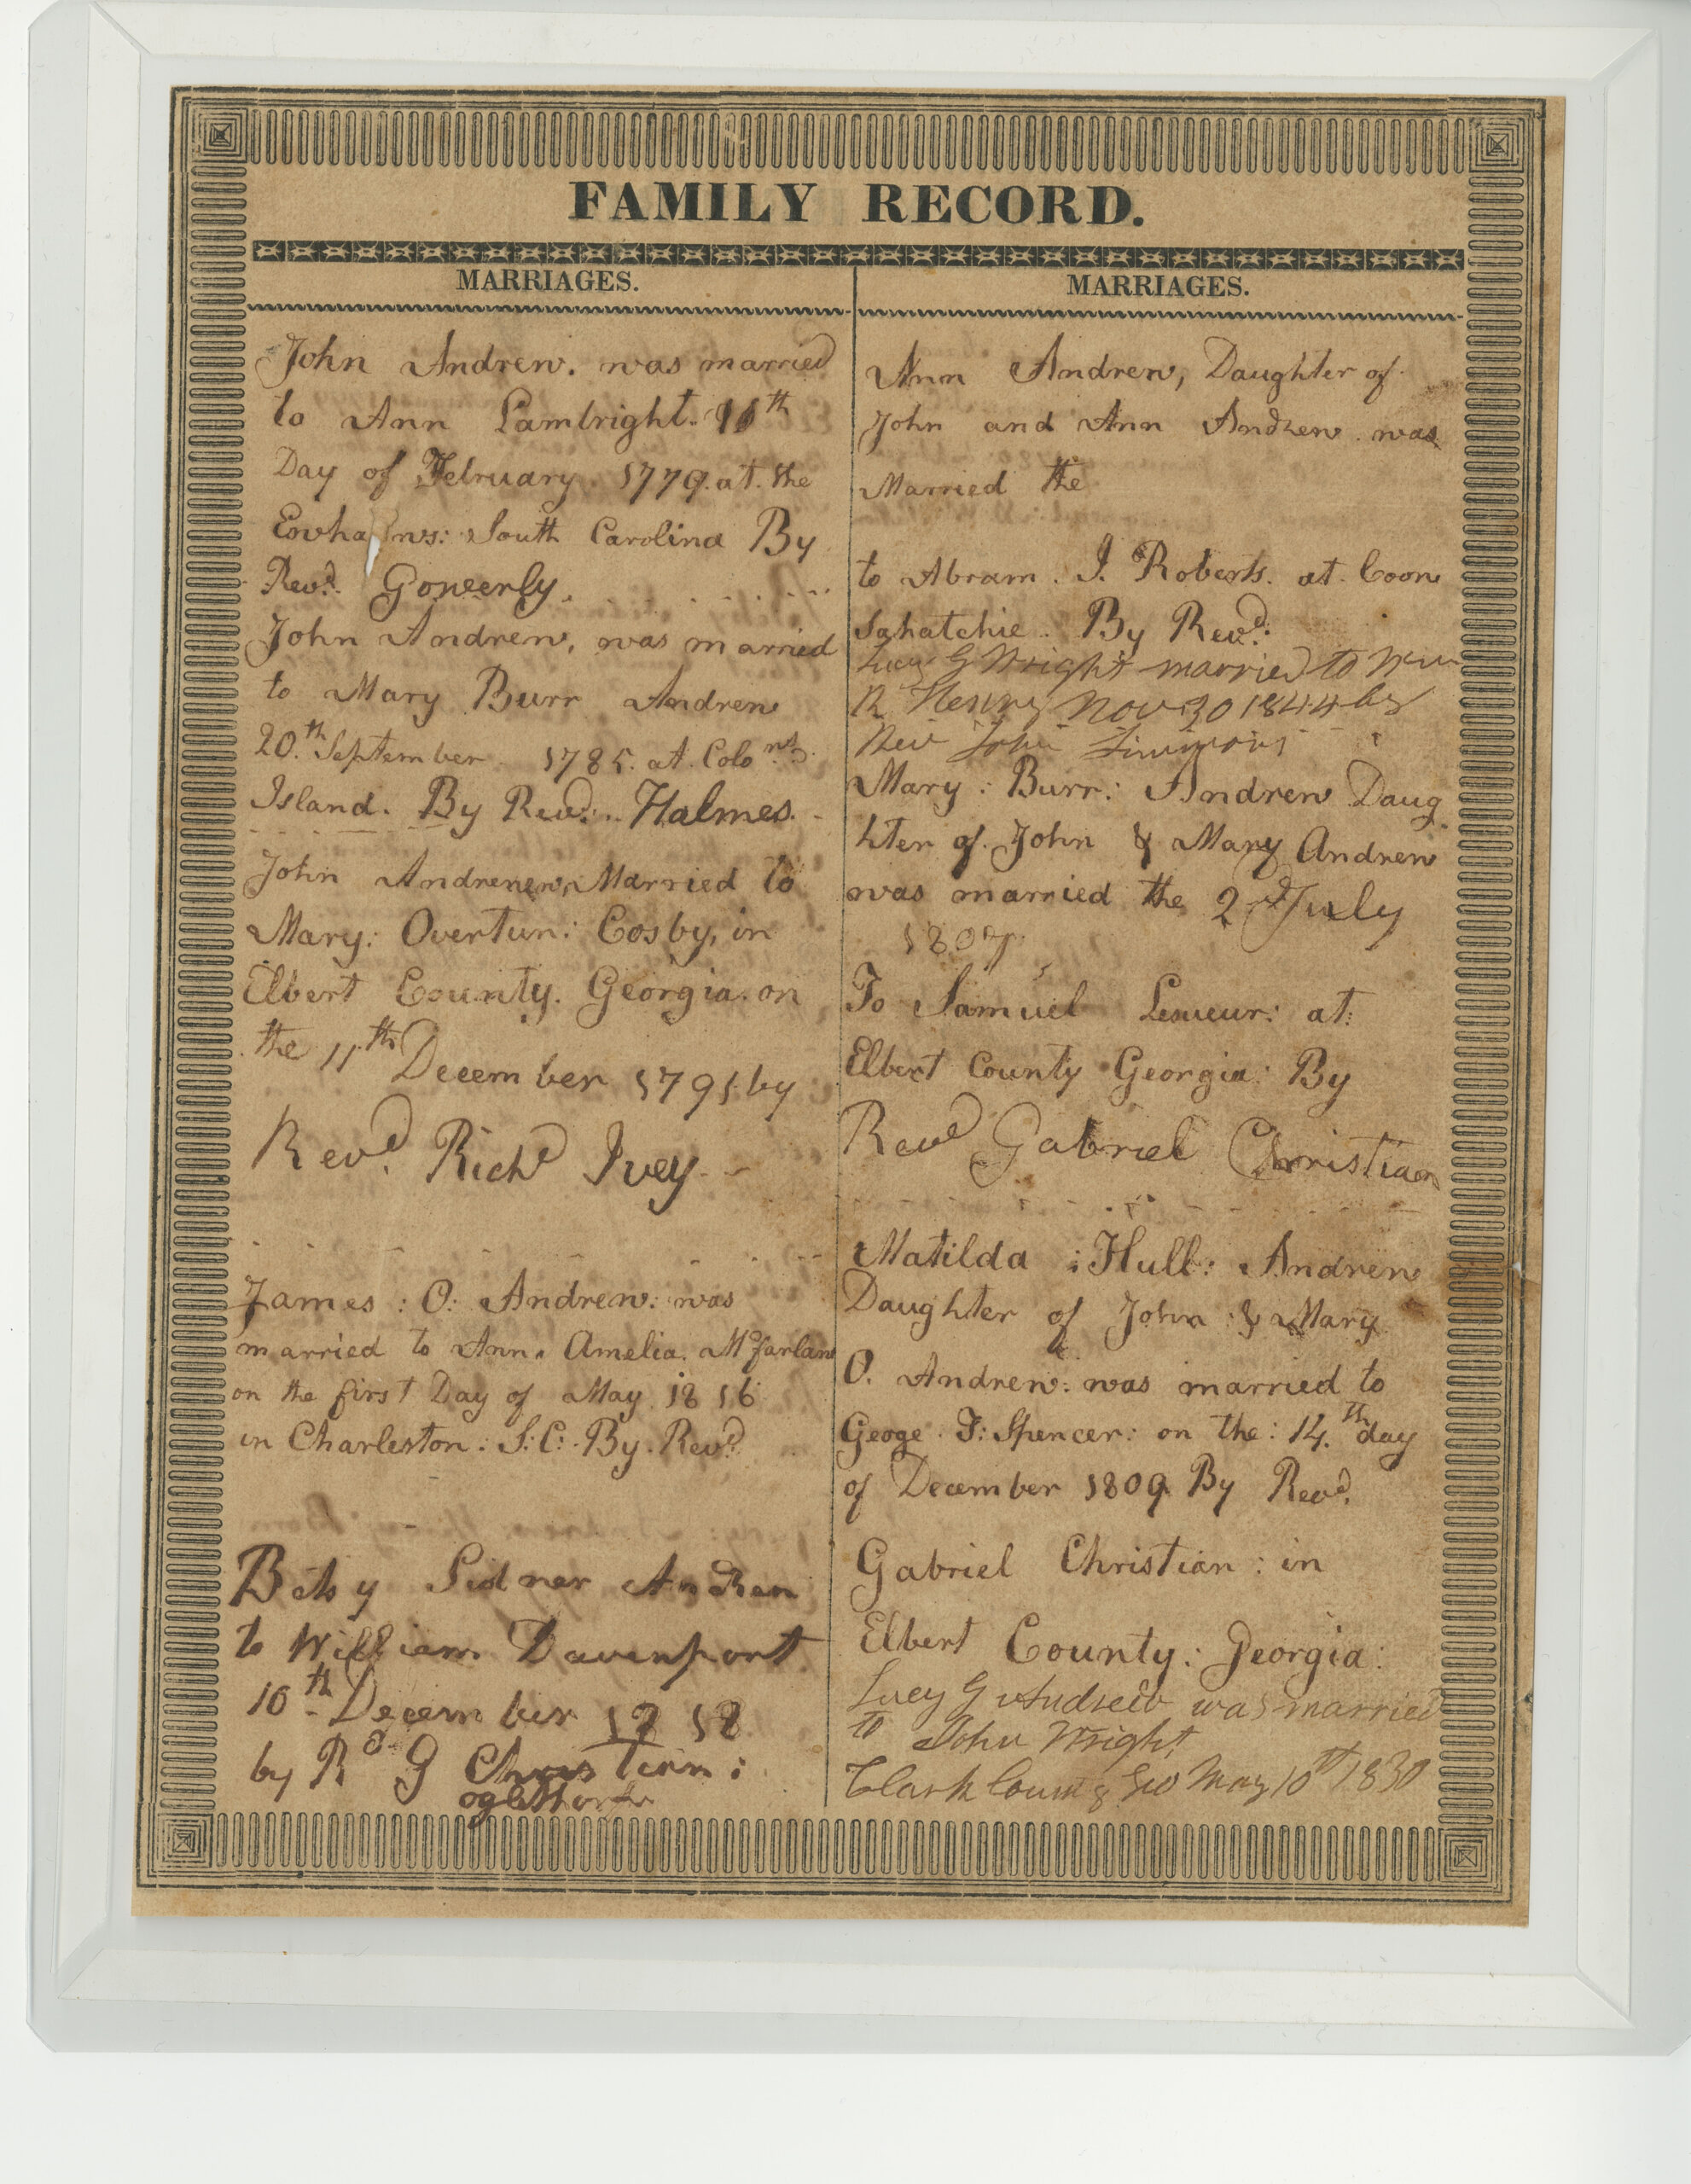 FAMILY RECORD.
MARRIAGES.
John Andrew. was married
to Ann Lambright.
Day of February. 1779. at. the
South Carolina By
Revd. Gowerly.
John Andrew, was married
to Mary Burr Andrew
20.th September 1785. at. Colo.ns.
Island. By Revd:. Halmes.
John Andrew, Married to
Mary: Overtun: Cosby, in
Elbert County. Georgia. on
the 11th December 1791 by
Revd. Richd Ivey
James: O: Andrew: was
married to Ann. Amelia. Mcfarlan
on the first Day of May 1816
in Charleston: S: C:. By. Revd.
Betsy Sidner Andrew
to William Davenport
10th December 1818
by Rd G Christian:
oglethorpe
MARRIAGES.
Ann Andrew, Daughter of
John and Ann Andrew was
Married the
to Abram. I. Roberts. at. Coow
sahatchie. By Revd:
Lucy G Wright married to Wm
R Henry Nov 30 1844 by
Rev John Simmons
Mary: Burr: Andrew Daug
hter of. John & Mary Andrew
was married the 2d July
1807
To Samuel Lesueur: at:
Elbert County Georgia: By
Revd Gabriel Christian
Matilda: Hull: Andrew
Daughter of John & Mary
O. Andrew: was married to
Geoge. F: Spencer: on the: 14.th day
of December 1809. By Revd.
Gabriel Christian: in
Elbert County: Georgia:
Lucy G Andrew was married
to John Wright
Clark County Geo May 10th 1830